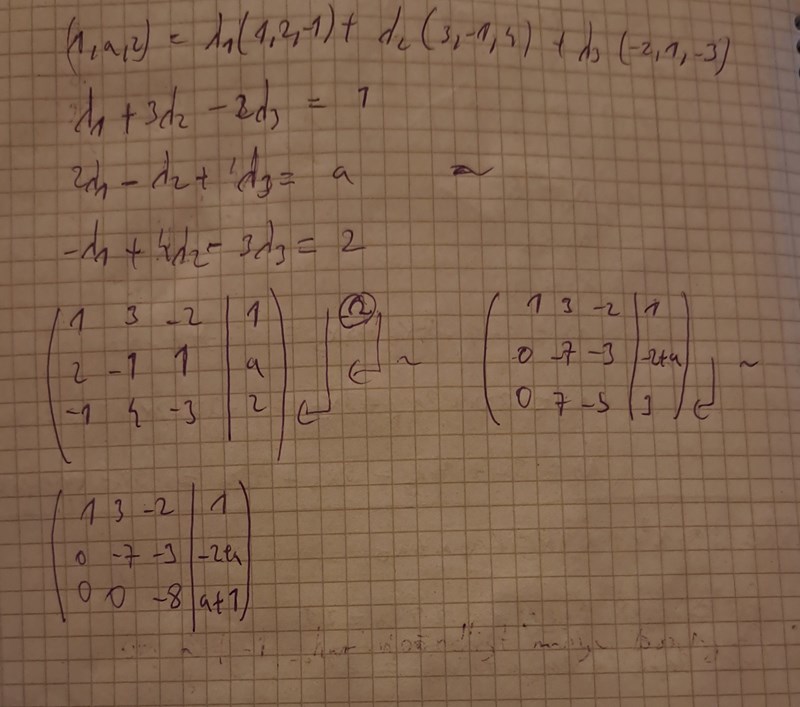 (1,a,2) = λ1(1,2,-1) + λ2(3,-1,4) + λ3(-2,1,-3)
λ1 + 3λ2 - 2λ3 = 1
2λ1 - λ2 + 1λ3 = a ~
-λ1 + 4λ2 - 3λ3 = 2
1 3 -2 | 1 -2 ~ 1 3 -2 | 1
2 -1 1 | a 0 -7 -3 | -2+a ~
-1 4 -3 | 2 0 7 -5 | 3
1 3 -2 | 1
0 -7 -3 | -2+a
0 0 -8 | a+1